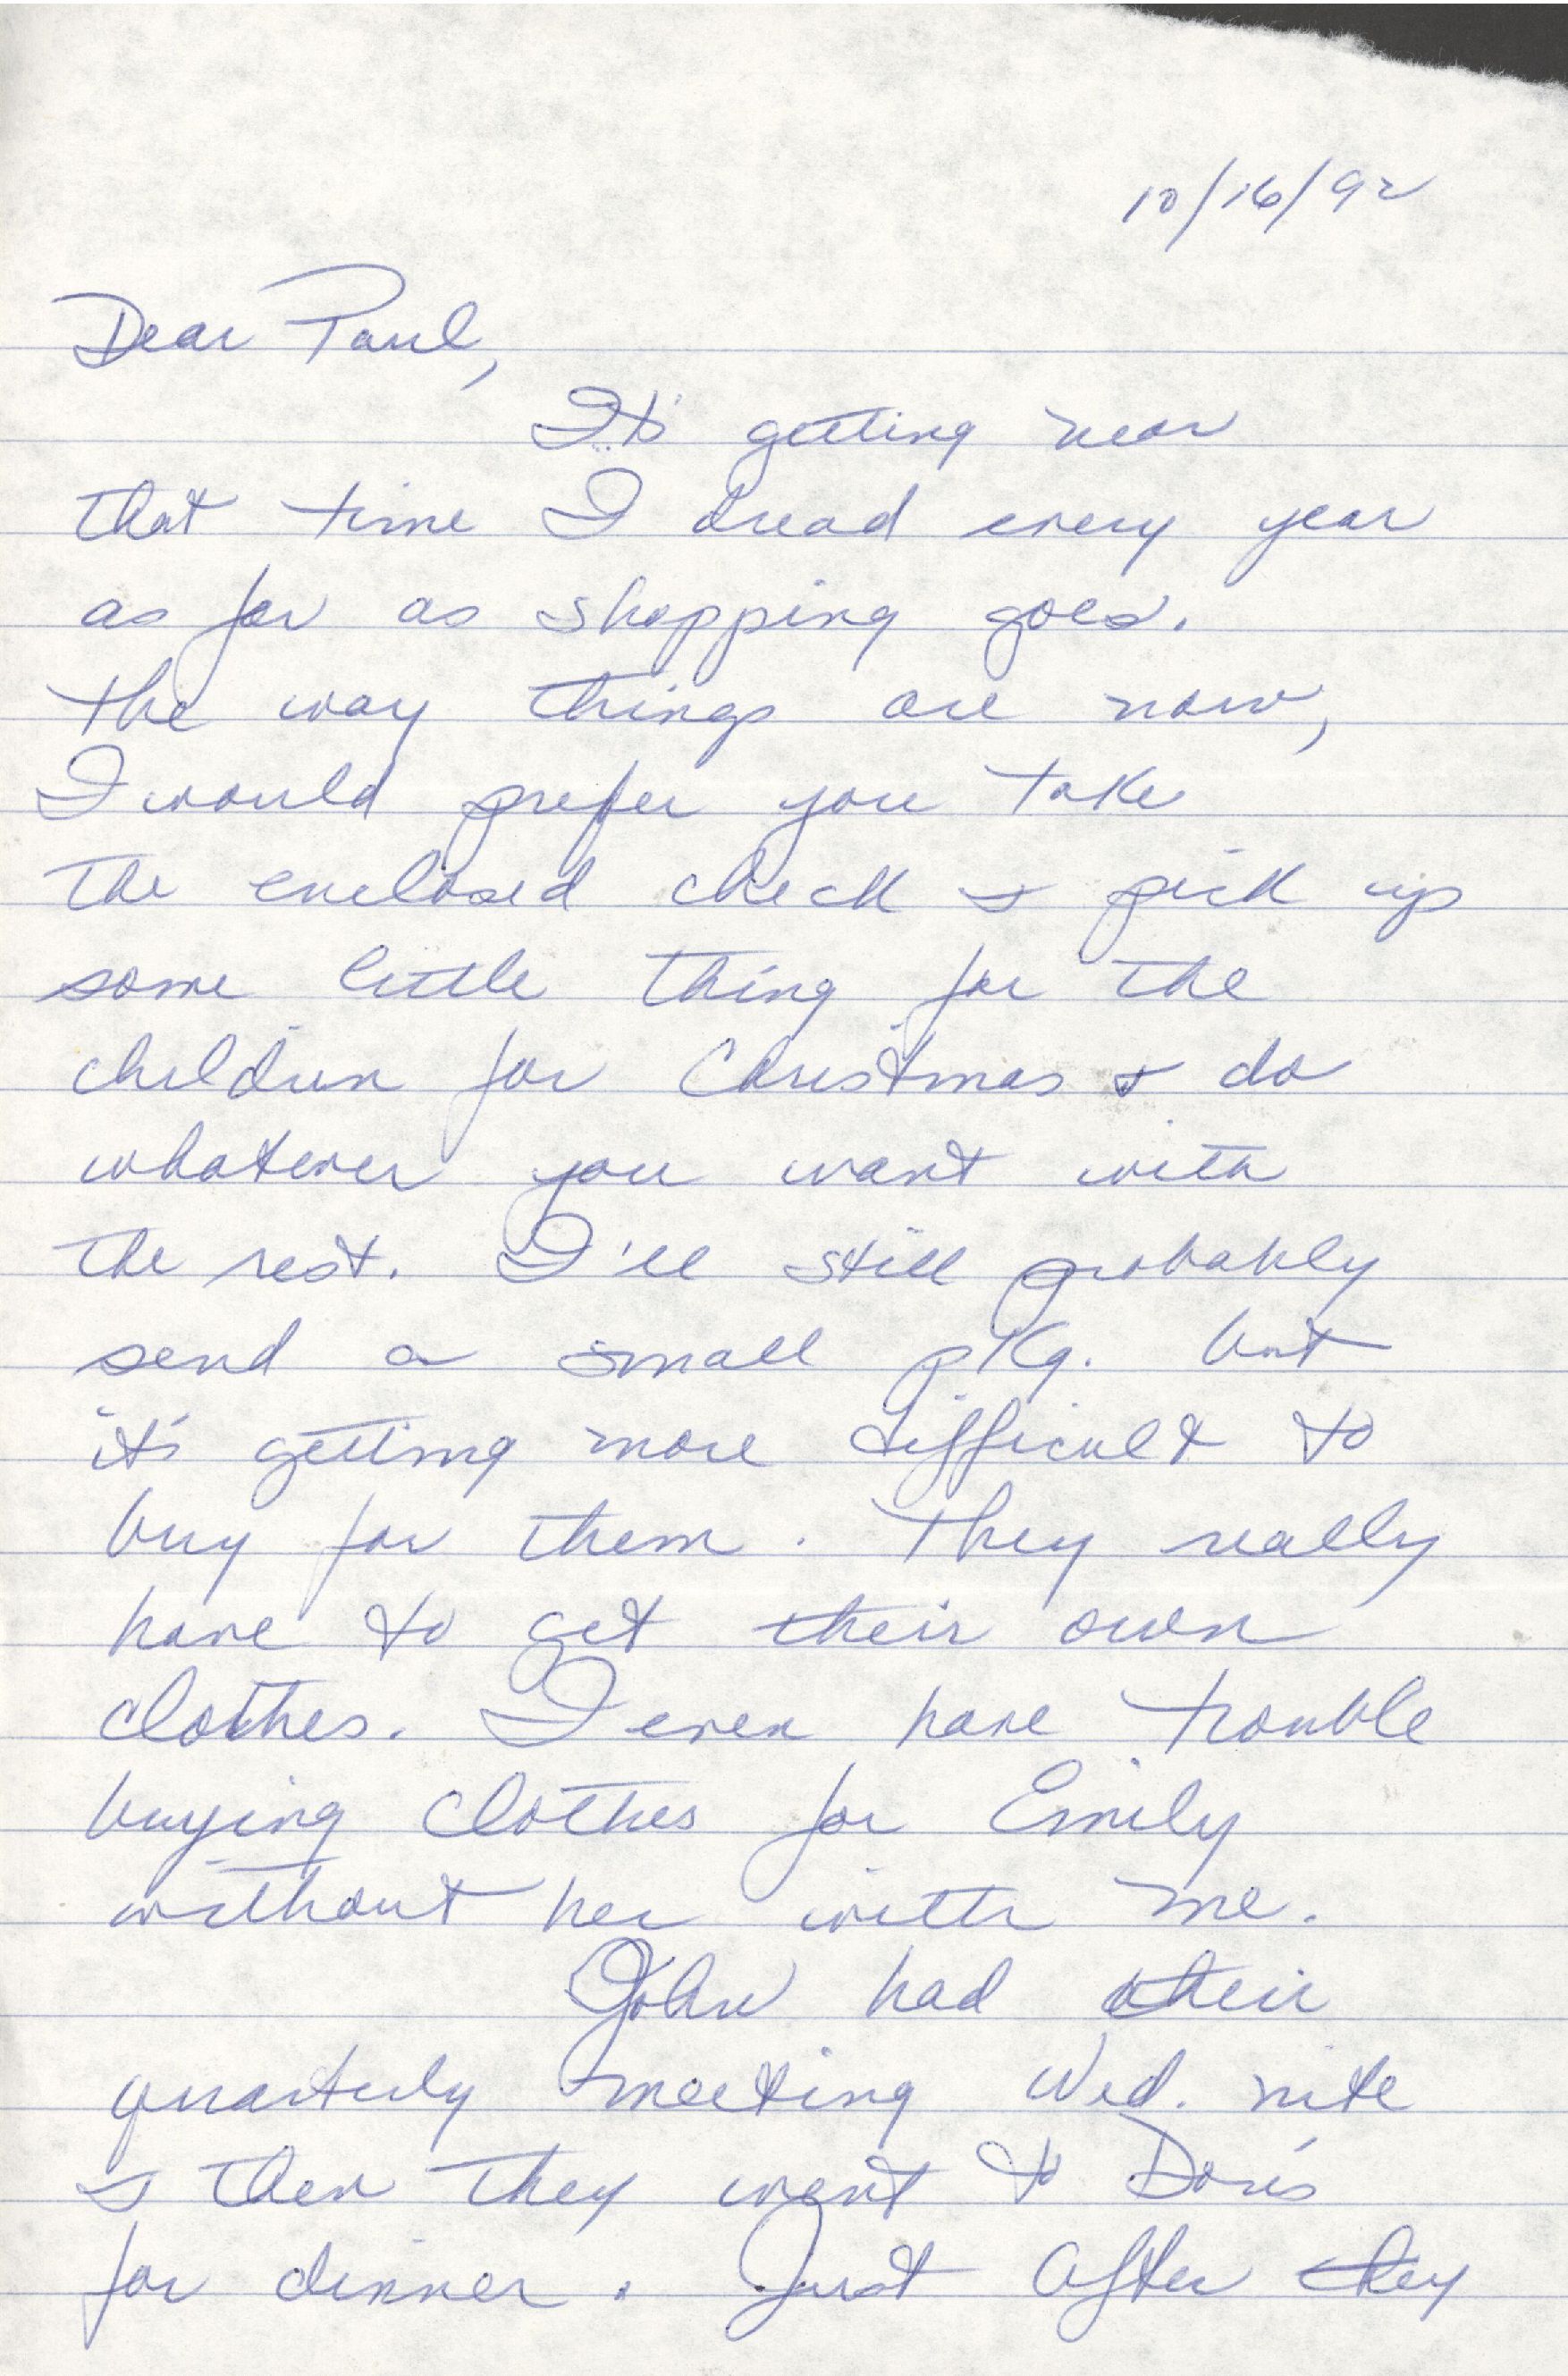 10/16/92
Dear Paul,
It's getting near
that time I dread every year
as far as shopping goes.
The way things are now,
I would prefer you take
the enclosed check & pick up
some little thing for the
children for Christmas & do
whatever you want with
the rest. I'll still probably
send a small pkg. but
it's getting more difficult to
buy for them. They really
have to get their own
clothes. I even have trouble
buying clothes for Emily
without her with me.
John had their
quarterly meeting Wed. nite
& then they went to Don's
for dinner. Just after they